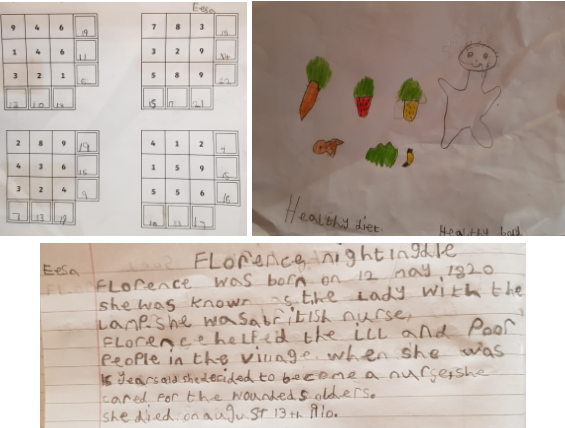 Eesa
9 4 6 19
1 4 6 11
3 2 1
7 8 3
3 2 9
5 8 9 22
15 21
2 8 9 19
4 3 6
3 2 4 9
13
4 1 2 7
1 5 9
5 5 6 16
17
Healthy diet. Healthy body
Eesa
Florence nightingale
Florence was born on 12 may 1820
she was known as the Lady with the
Lamp. she was a british nurse,
Florence helped the ill and Poor
People in the village. when she was
years old she decided to become a nurse, she
cared for the wounded soldiers.
she died on august 13th